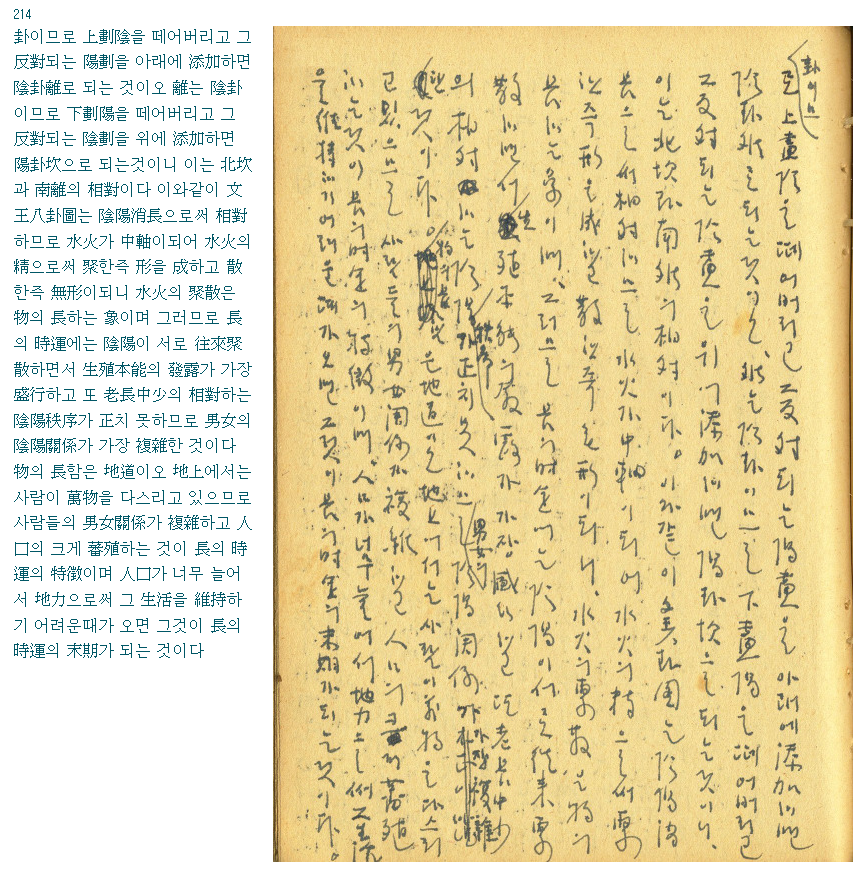 214
卦이므로 上劃陰을 떼어버리고 그
反對되는 陽劃을 아래에 添加하면
陰卦離로 되는 것이오 離는 陰卦
이므로 下劃陽을 떼어버리고 그
反對되는 陰劃을 위에 添加하면
陽卦坎으로 되는것이니 이는 北坎
과 南離의 相對이다 이와같이 文
王八卦圖는 陰陽消長으로써 相對
하므로 水火가 中軸이되어 水火의
精으로써 聚한즉 形을 成하고 散
한즉 無形이되니 水火의 聚散은
物의 長하는 象이며 그러므로 長
의 時運에는 陰陽이 서로 往來聚
散하면서 生殖本能의 發露가 가장
盛行하고 또 老長中少의 相對하는
陰陽秩序가 正치 못하므로 男女의
陰陽關係가 가장 複雜한 것이다
物의 長함은 地道이오 地上에서는
사람이 萬物을 다스리고 있으므로
사람들의 男女關係가 複雜하고 人
口의 크게 蕃殖하는 것이 長의 時
運의 特徵이며 人口가 너무 늘어
서 地力으로써 그 生活을 維持하
기 어려운때가 오면 그것이 長의
時運의 末期가 되는 것이다
卦이므로 上畫陰을 떼어버리고 그 反對되는 陽畫을 아래에 添加하면
陰卦離로 되는 것이오, 離는 陰卦이므로 下畫陽을 떼어버리고
그 反對되는 陰畫을 위에 添加하면 陽卦坎으로 되는 것이니,
이는 北坎과 南離의 相對이다. 이와같이 文王八卦圖는 陰陽消
長으로써 相對하므로 水火가 中軸이되어 水火의 精으로써 聚
한즉 形을 成하고 散한즉 無形이되니, 水火의 聚散은 物의
長하는 象이며, 그러므로 長의 時運에는 陰陽이 서로 往來聚
散하면서 生殖本能의 發露가 가장 盛行하고 또 老長中少
의 相對하는 陰陽秩序가 正치 못하므로 男女의 陰陽關係가 가장 複雜
한 것이다. 物의 長함은 地道이오 地上에서는 사람이 萬物을 다스리
고 있으므로 사람들의 男女關係가 複雜하고 人口의 크게 蕃殖
하는 것이 長의 時運의 特徵이며, 人口가 너무 늘어서 地力으로써 그 生活
을 維持하기 어려운 때가 오면 그것이 長의 時運의 末期가 되는 것이다.